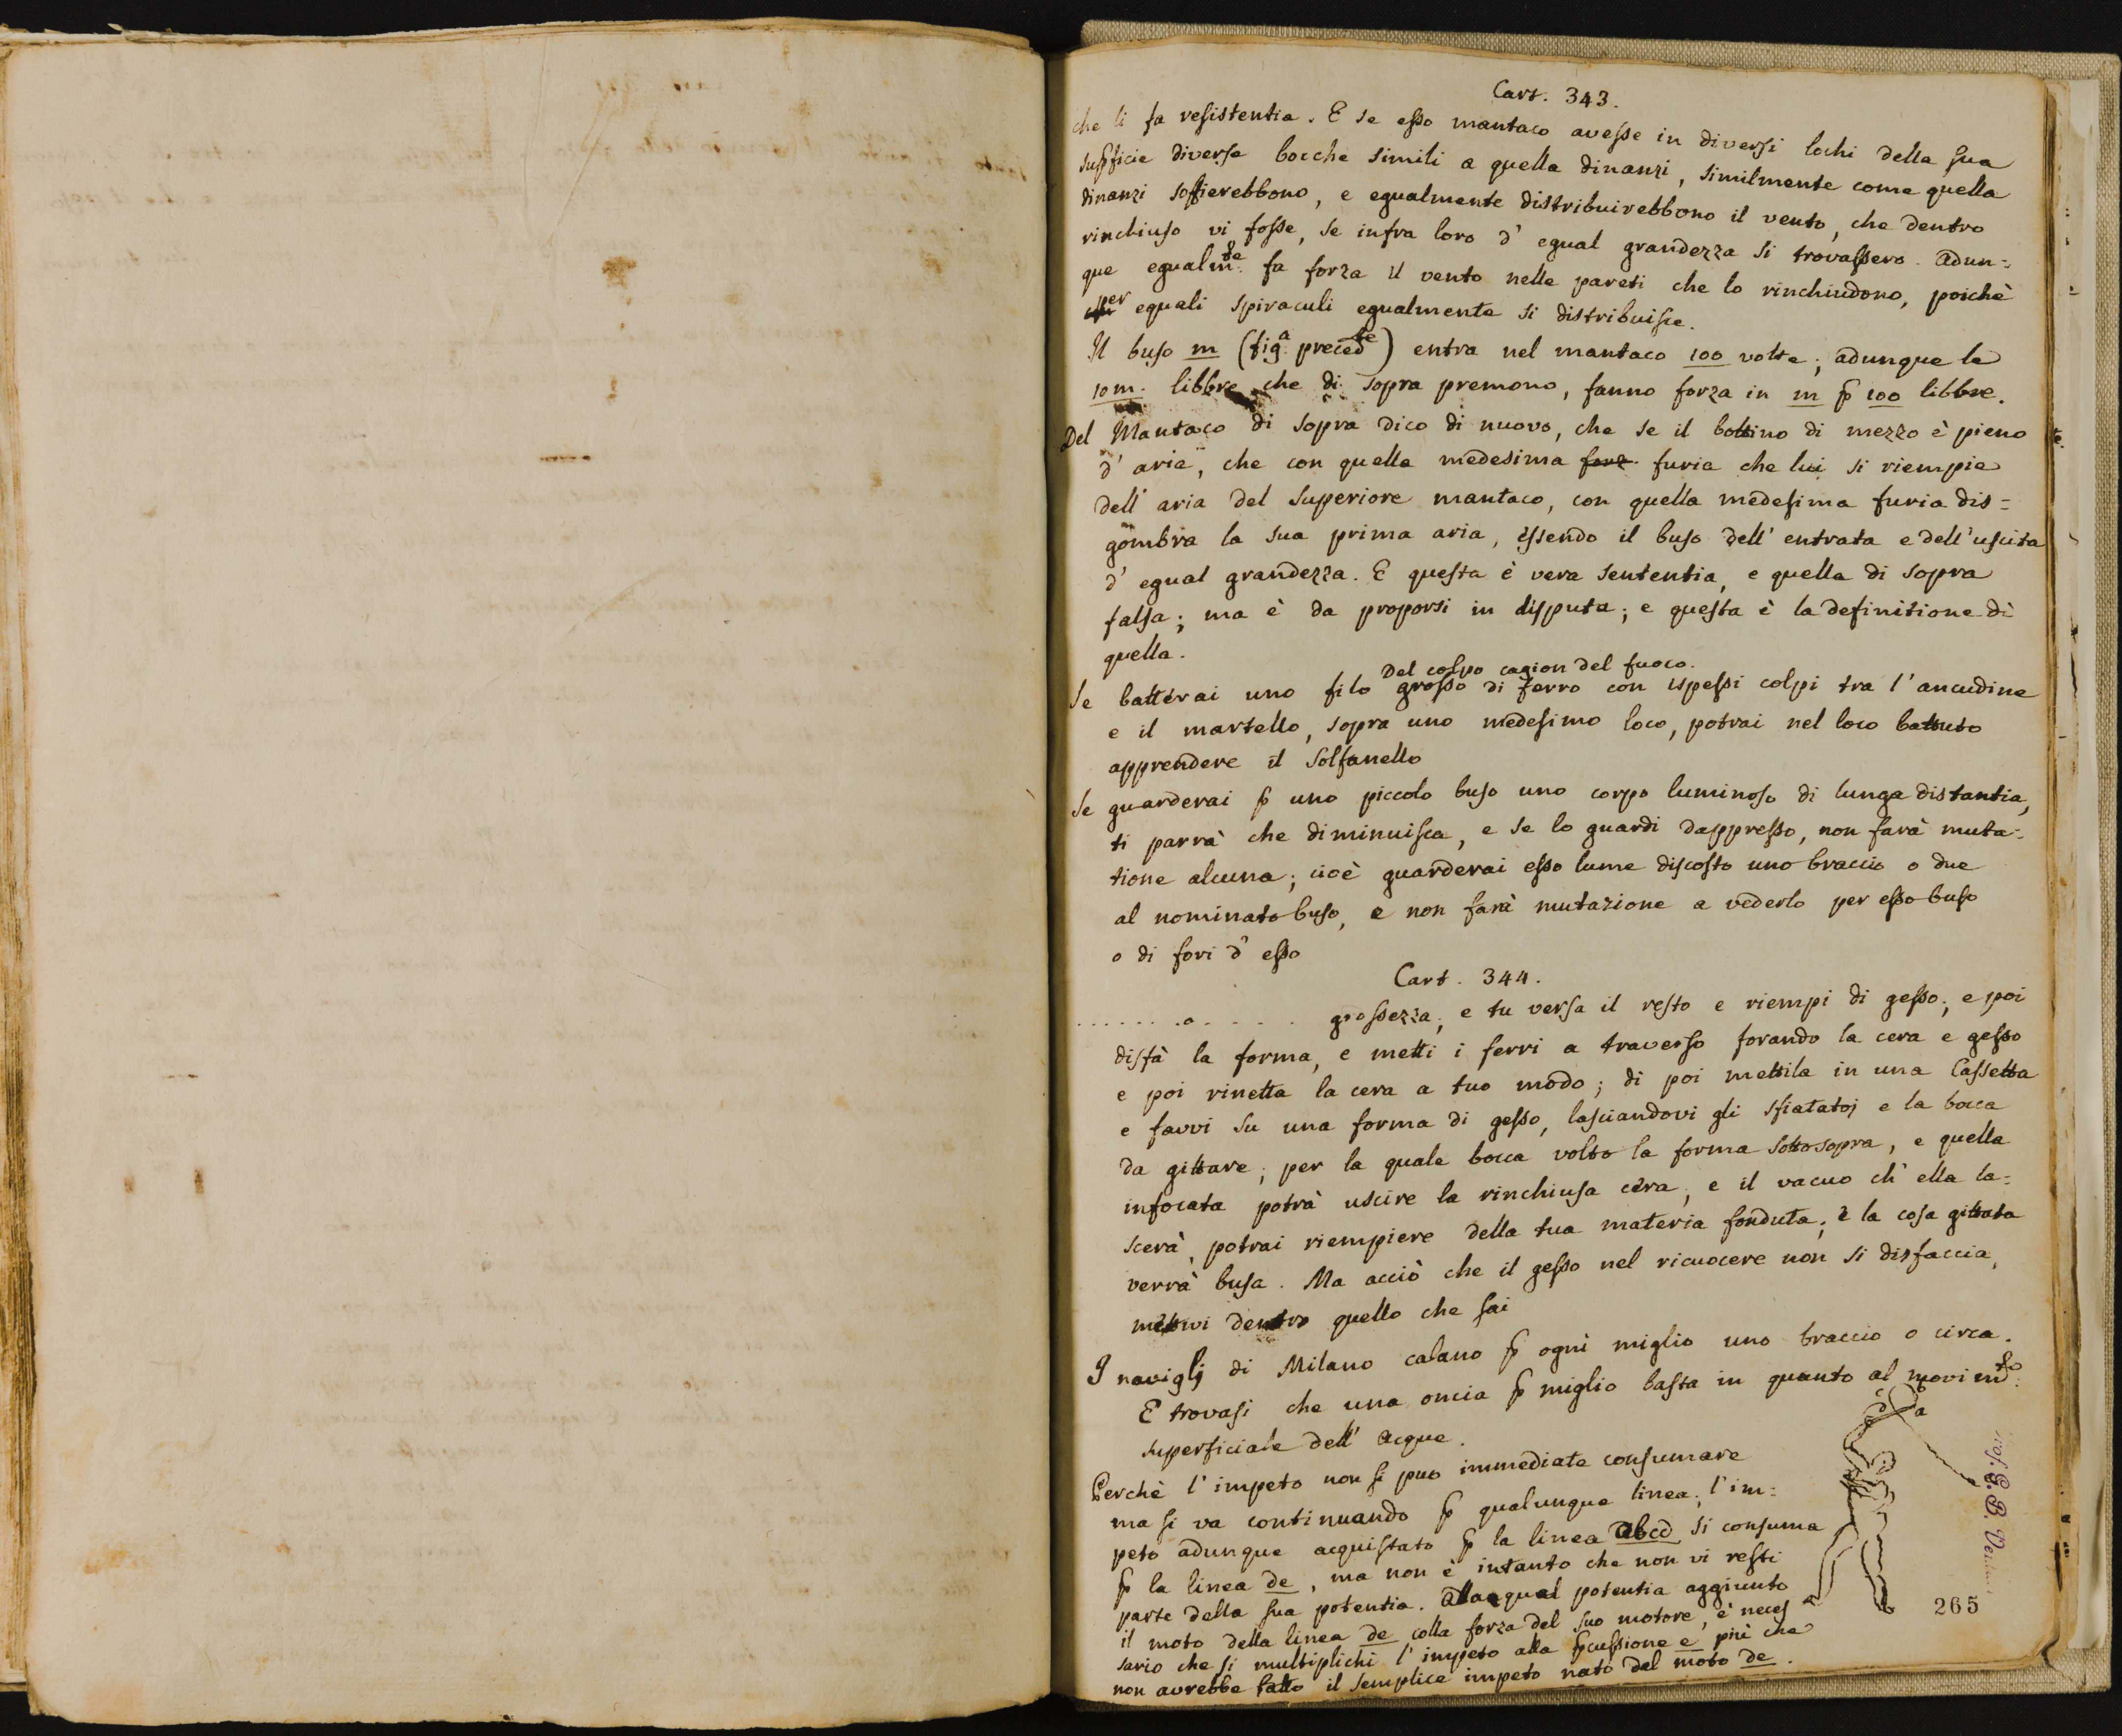 Cart. 343.
che li fa resistentia. E se esso mantaco avesse in diversi lochi della sua
supficie diverse bocche simili a quella dinanzi, similmente come quella
dinanzi soffierebbono, e egualmente distribuirebbono il vento, che dentro
rinchiuso vi fosse, se infra loro d' egual grandezza si trovassero. Adun=
que egualm.te fa forza il vento nelle pareti che lo rinchiudono, poichè
per eguali spiraculi egualmente si distribuisce.
Il buso m (fig.a preced.te) entra nel mantaco 100 volte; adunque le
10m. libbre che di sopra premono, fanno forza in m p 100 libbre.
Del Mantaco di sopra dico di nuovo, che se il bottino di mezzo è pieno
d' aria, che con quella medesima forz furia che lui si riempie
dell' aria del superiore mantaco, con quella medesima furia dis=
gombra la sua prima aria, essendo il buso dell' entrata e dell' uscita
d' egual grandezza. E questa è vera sententia, e quella di sopra
falsa; ma è da proporsi in disputa; e questa è la definitione di
quella.
Del colpo cagion del fuoco.
Se batterai uno filo grosso di ferro con ispessi colpi tra l' ancudine
e il martello, sopra uno medesimo loco, potrai nel loco battuto
apprendere il solfanello
Se guarderai p uno piccolo buso uno corpo luminoso di lunga distantia,
ti parrà che diminuisca, e se lo guardi dappresso, non farà muta=
tione alcuna; cioè guarderai esso lume discosto uno braccio o due
al nominato buso, e non farà mutazione a vederlo per esso buso
o di fori d' esso
Cart. 344.
. . . . . . . o . . . . . grossezza; e tu versa il resto e riempi di gesso; e poi
disfà la forma, e metti i ferri a traverso forando la cera e gesso
e poi rinetta la cera a tuo modo; di poi mettila in una Cassetta
e favvi su una forma di gesso, lasciandovi gli sfiatatoj e la bocca
da gittare; per la quale bocca volto la forma sottosopra, e quella
infocata potrà uscire la rinchiusa cera, e il vacuo ch' ella la=
scerà, potrai riempiere della tua materia fonduta; e la cosa gittata
verrà busa. Ma acciò che il gesso nel ricuocere non si disfaccia,
mettivi dentro quello che sai
I naviglj di Milano calano p ogni miglio uno braccio o circa.
E trovasi che una oncia p miglio basta in quanto al movim.to
superficiale dell' acque.
Perchè l' impeto non si puo immediate consumare
ma si va continuando p qualunque linea; l' im=
peto adunque acquistato p la linea abcd si consuma
p la linea de, ma non è intanto che non vi resti
parte della sua potentia. Alla qual potentia aggiunto
il moto della linea de colla forza del suo motore, è neces
sario che si multiplichi l' impeto alla pcussione e più che
non avrebbe fatto il semplice impeto nato dal moto de.
c b
d a
265